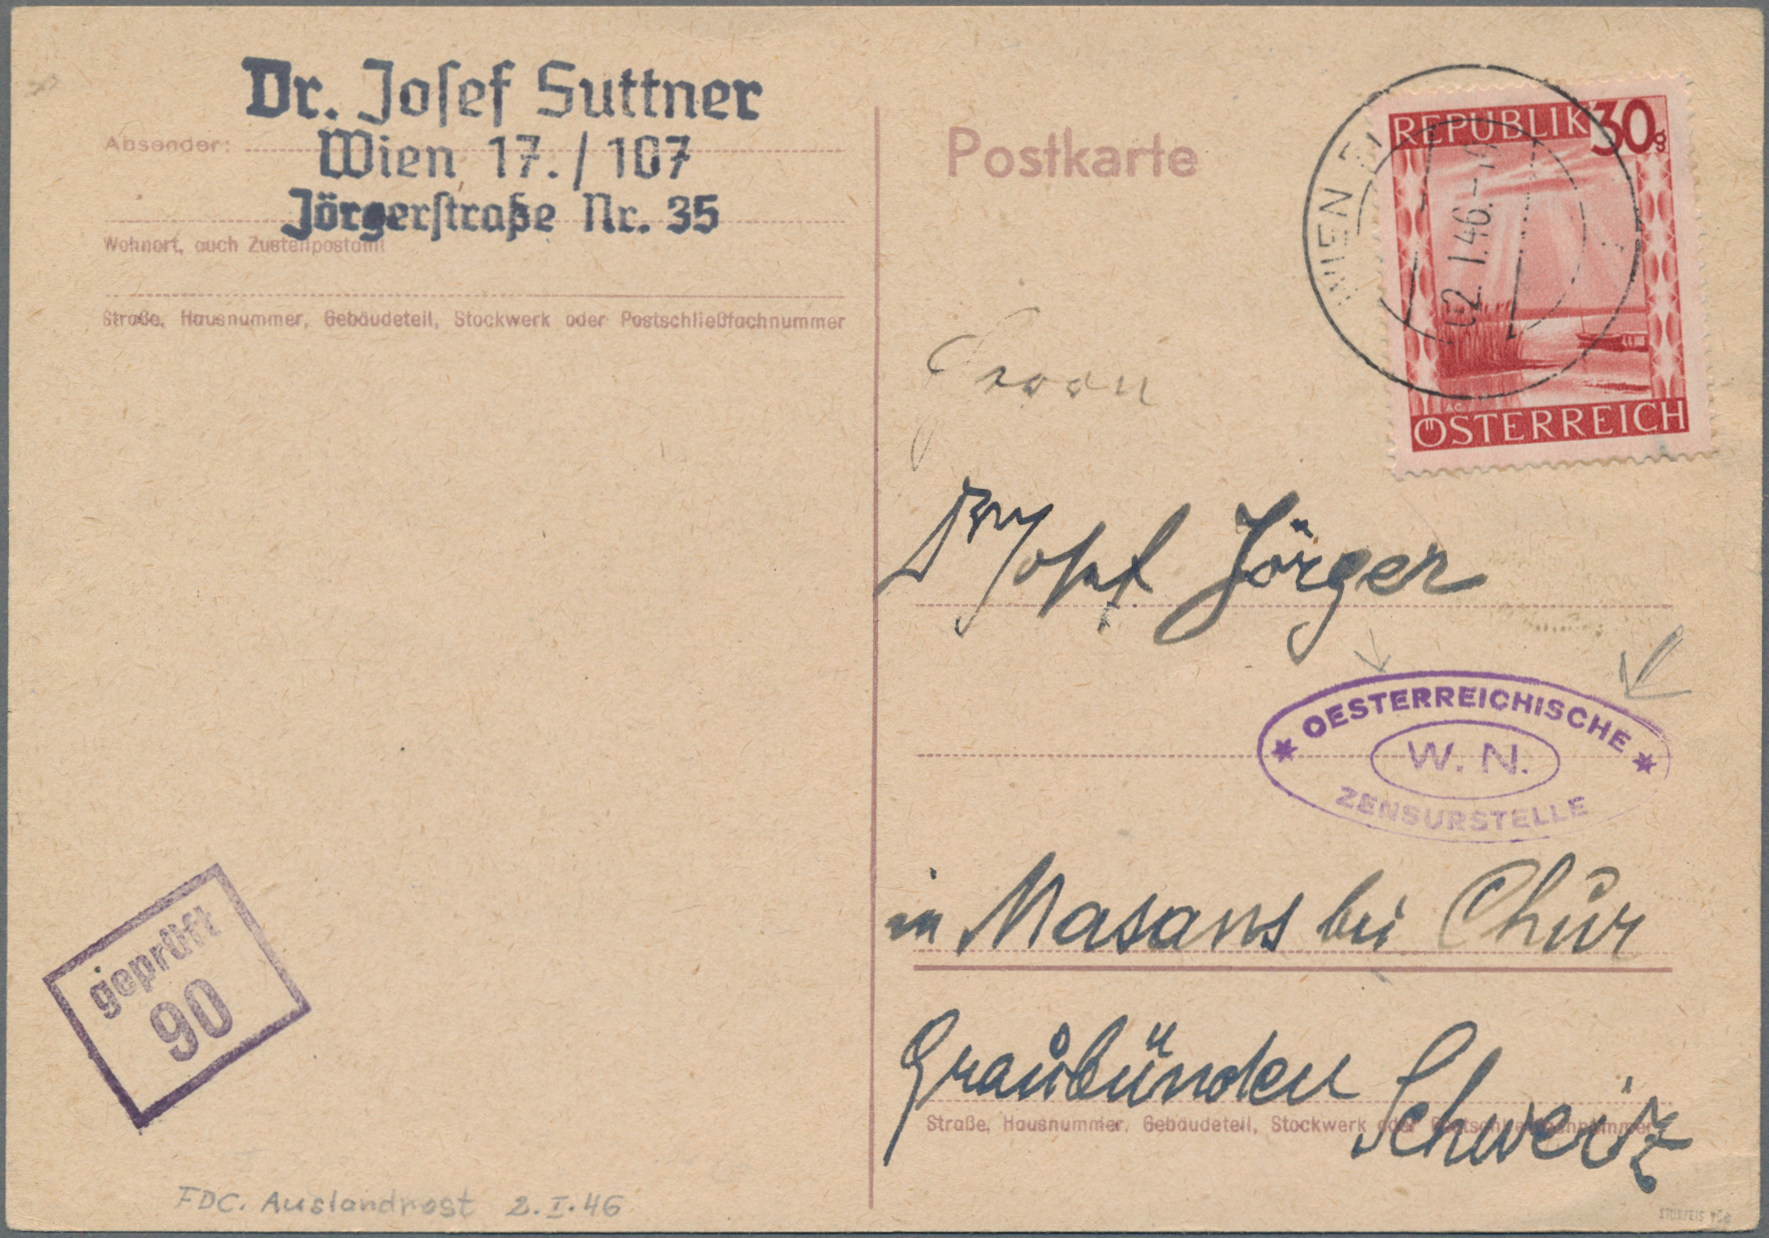 Dr. Josef Suttner
Absender:
Wien 17./107
Jörgerstraße Nr. 35
Wohnort, auch Zustellpostamt
Straße, Hausnummer, Gebäudeteil, Stockwerk oder Postschließfachnummer
Postkarte
REPUBLIK 30 g
ÖSTERREICH
WIEN
2. 1.46.-
Dr Josef Jörger
OESTERREICHISCHE
W. N.
ZENSURSTELLE
in Masans bei Chur
Graubünden Schweiz
Straße, Hausnummer, Gebäudeteil, Stockwerk oder Postschließfachnummer
geprüft
90
FDC. Auslandpost 2.I.46